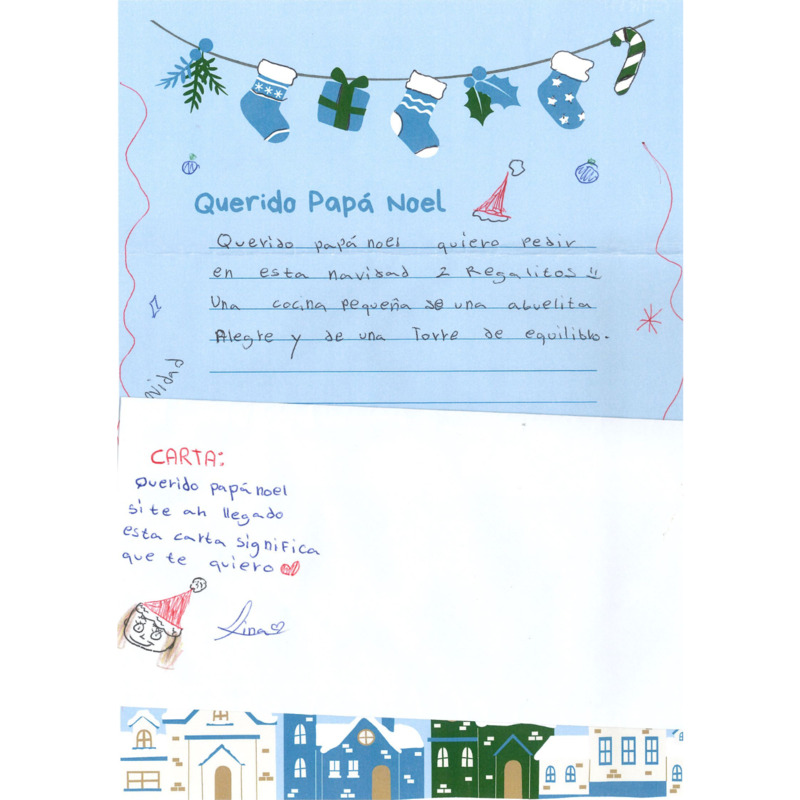 Querido Papá Noel
Querido papá noel quiero pedir
en esta navidad 2 Regalitos
Una cocina pequeña de una abuelita
Alegre y de una Torre de equilibio.
vidad
CARTA:
Querido papá noel
si te ah llegado
esta carta significa
que te quiero
Lina